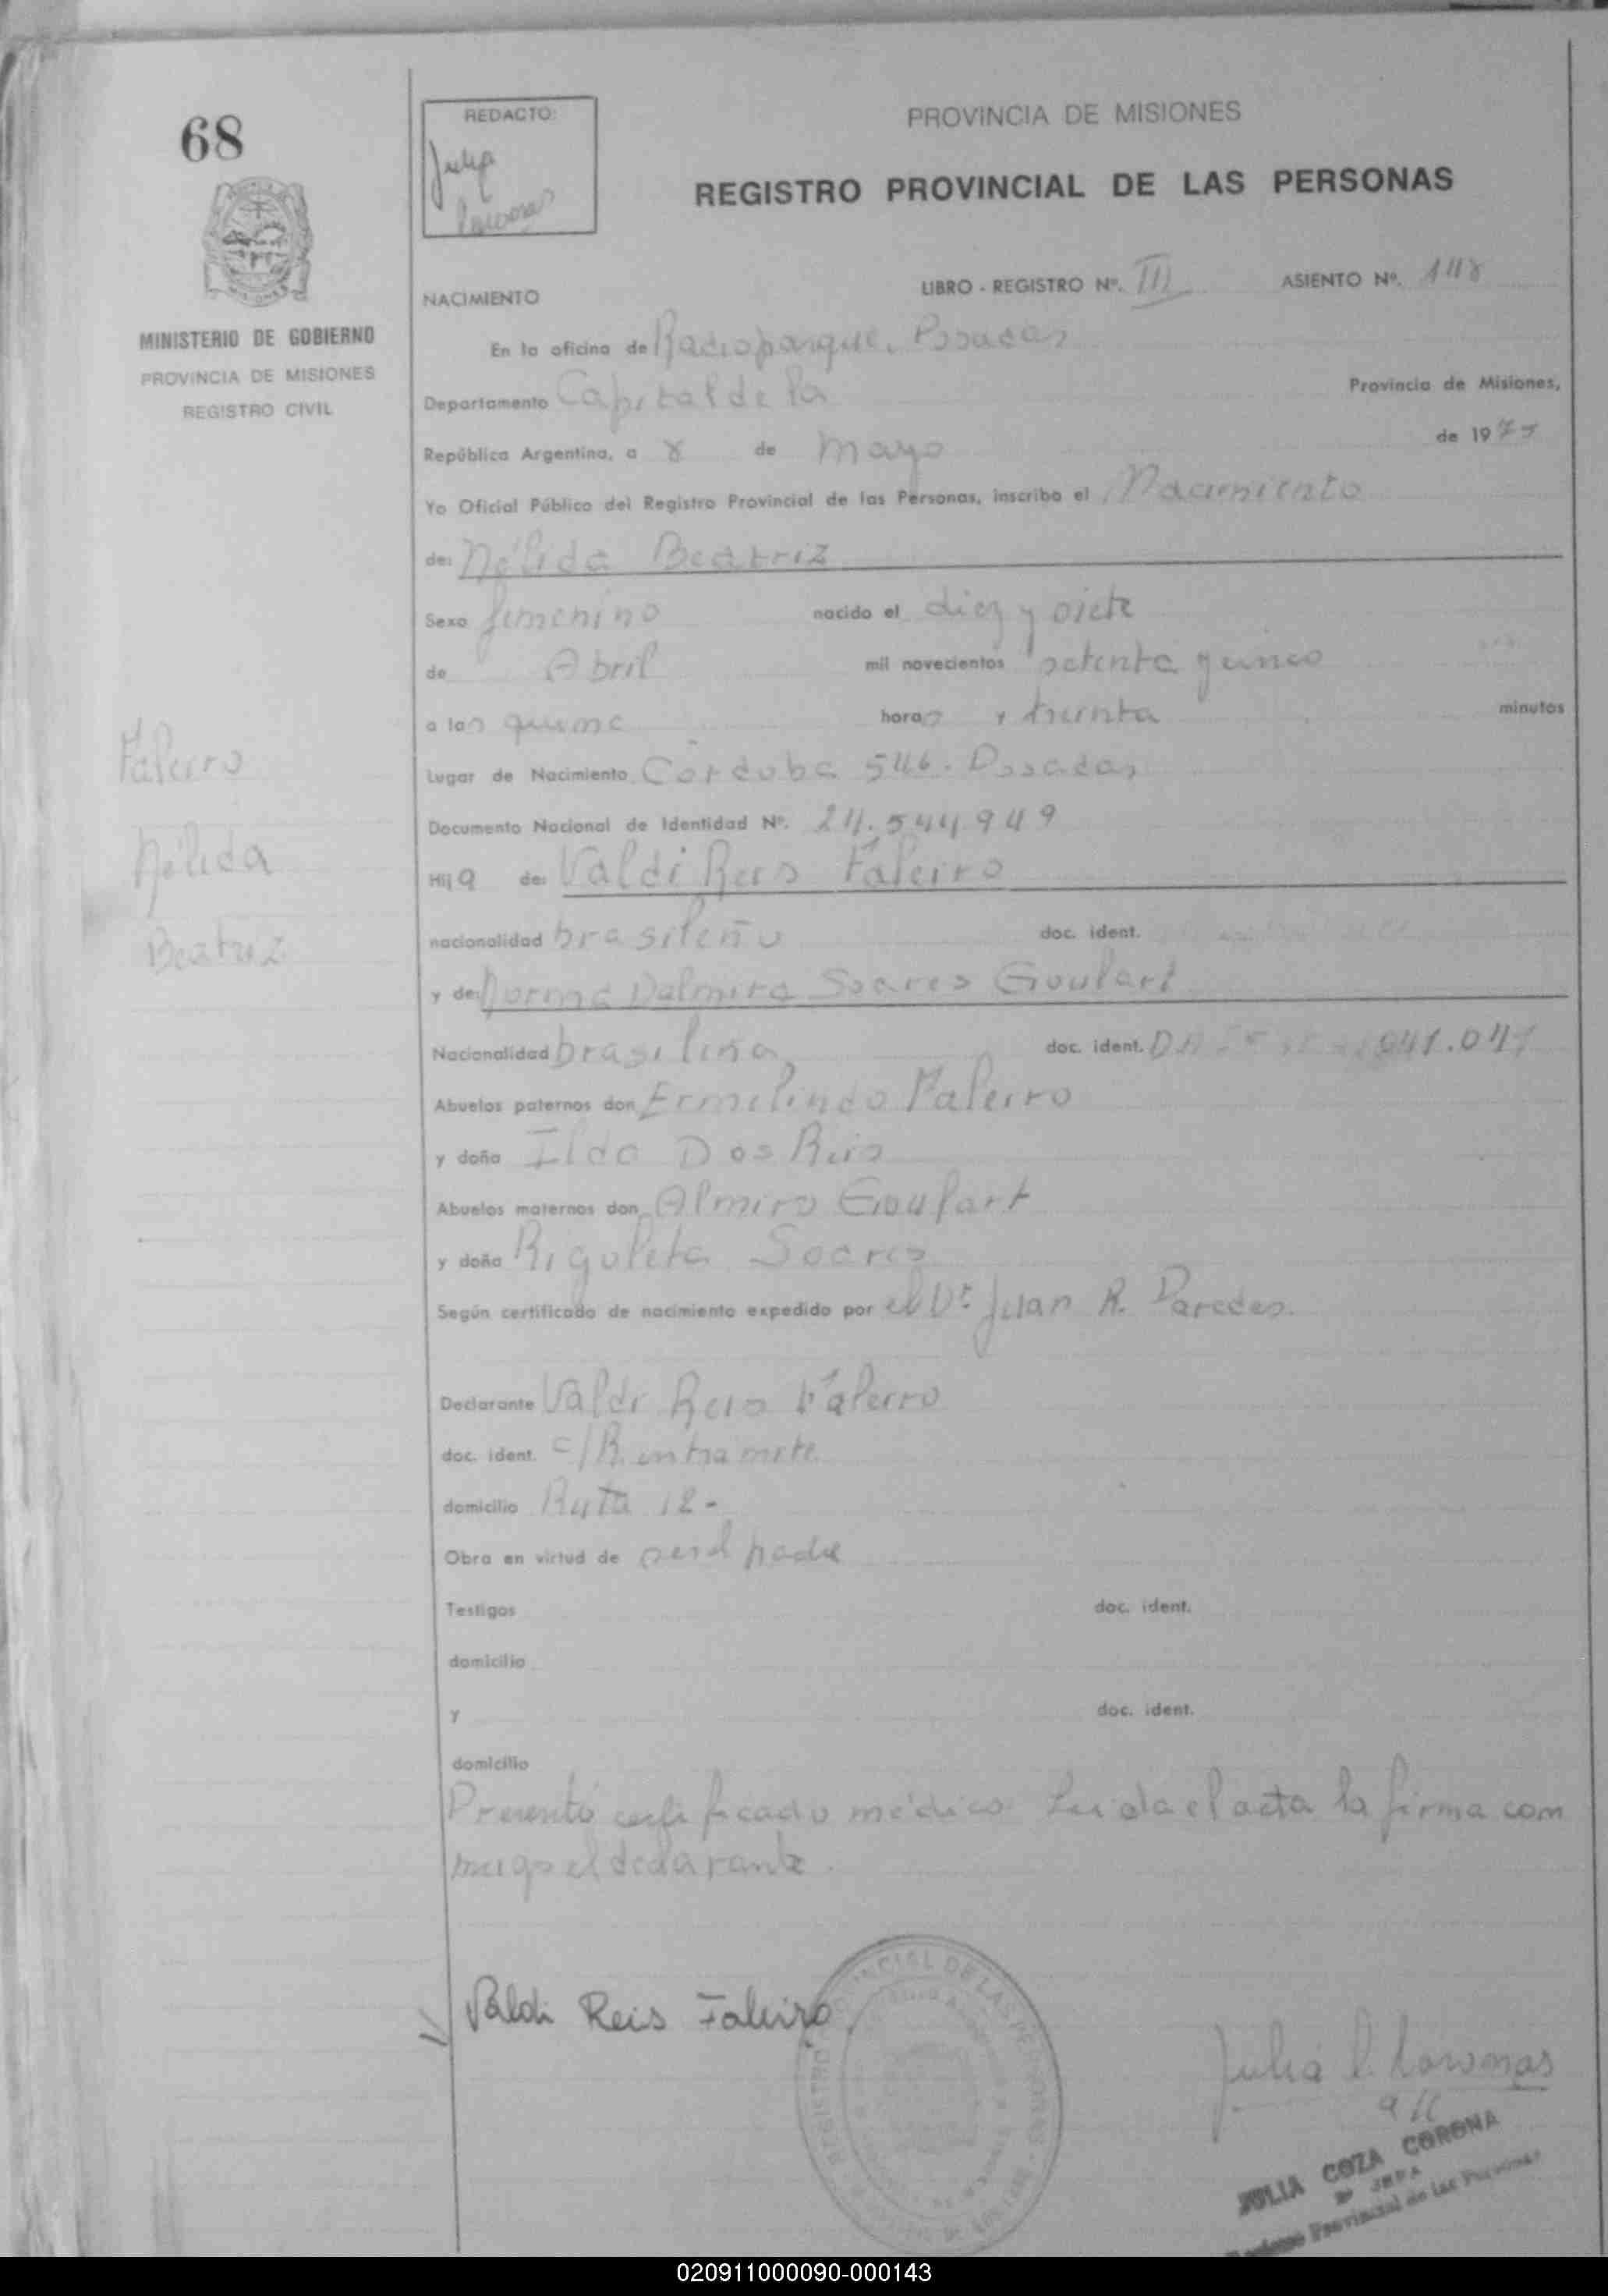 68
REDACTO:
Julia
PROVINCIA DE MISIONES
REGISTRO PROVINCIAL DE LAS PERSONAS
MINISTERIO DE GOBIERNO
PROVINCIA DE MISIONES
REGISTRO CIVIL
NACIMIENTO
LIBRO - REGISTRO Nº. III ASIENTO Nº.
En la oficina de Radioparque, Posadas
Departamento Capital de la Provincia de Misiones,
República Argentina, a 8 de mayo de 1975
Yo Oficial Público del Registro Provincial de las Personas, inscribo el Nacimiento
de: Nélida Beatriz
Sexo femenino nacido el diez y siete
de Abril mil novecientos setenta y cinco
a las quince horas y treinta minutos
Lugar de Nacimiento Córdoba 546. Posadas
Documento Nacional de Identidad Nº. 24.544.949
Hija de: Valdi Reis Faleiro
nacionalidad brasileño doc. ident.
y de: Norma Dalmira Soares Goulart
Nacionalidad brasileña doc. ident.
Abuelos paternos don Ermelindo Faleiro
y doña Ilda Dos Reis
Abuelos maternos don Almiro Goulart
y doña Rigoleta Soares
Según certificado de nacimiento expedido por el Dr. Juan R. Paredes.
Declarante Valdi Reis Faleiro
doc. ident. C/R. en tramite
domicilio Ruta 12-
Obra en virtud de ser el padre
Testigos doc. ident.
domicilio
y doc. ident.
domicilio
Presentó certificado médico. Leida el acta la firma con
migo el declarante.
Faleiro
Nélida
Beatriz
Valdi Reis Faleiro
REGISTRO PROVINCIAL DE LAS PERSONAS
Julia
JULIA COZA CORONA
JEFA
Registro Provincial de las Personas
020911000090-000143